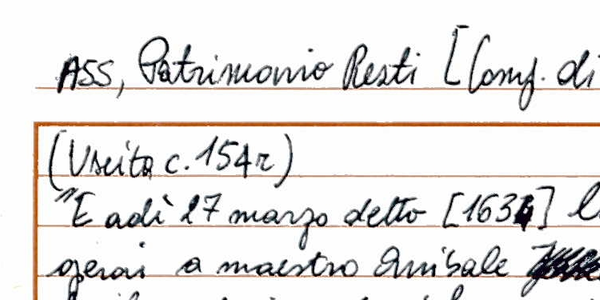 ASS, Patrimonio Resti [Comp. di
(Uscita c. 154r)
"E adì 27 marzo detto [1634]
gerai a maestro Anibale